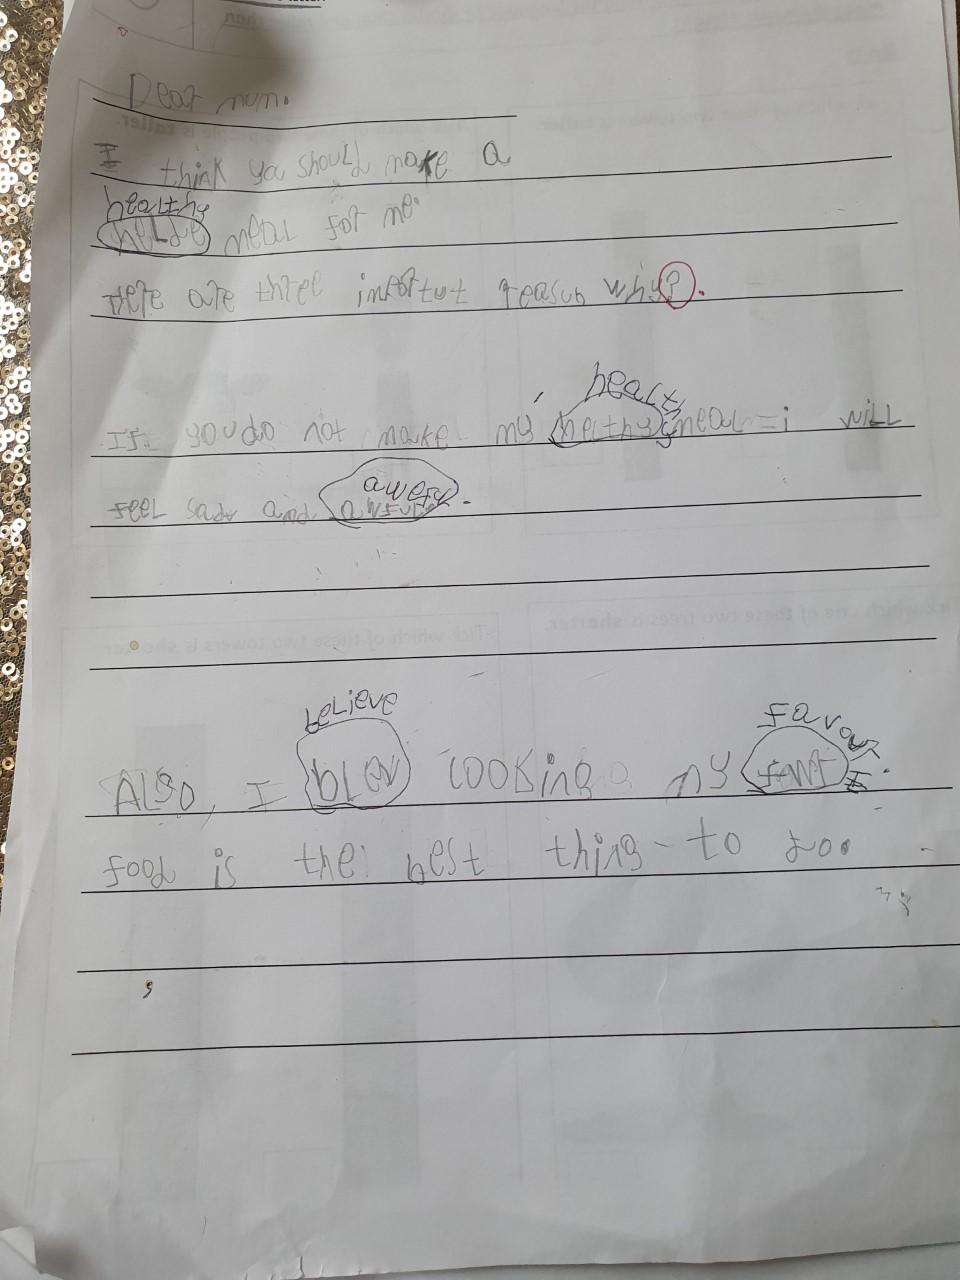 Dear mum.
I think you should make a
healthy
helde meal for me.
there are three imfortut reasun why?.
healthy
If you do not make my helthy meal i will
awefu
feel sad and awful.
believe
favourite
Also, I blev cooking my
food is the best thing to do.